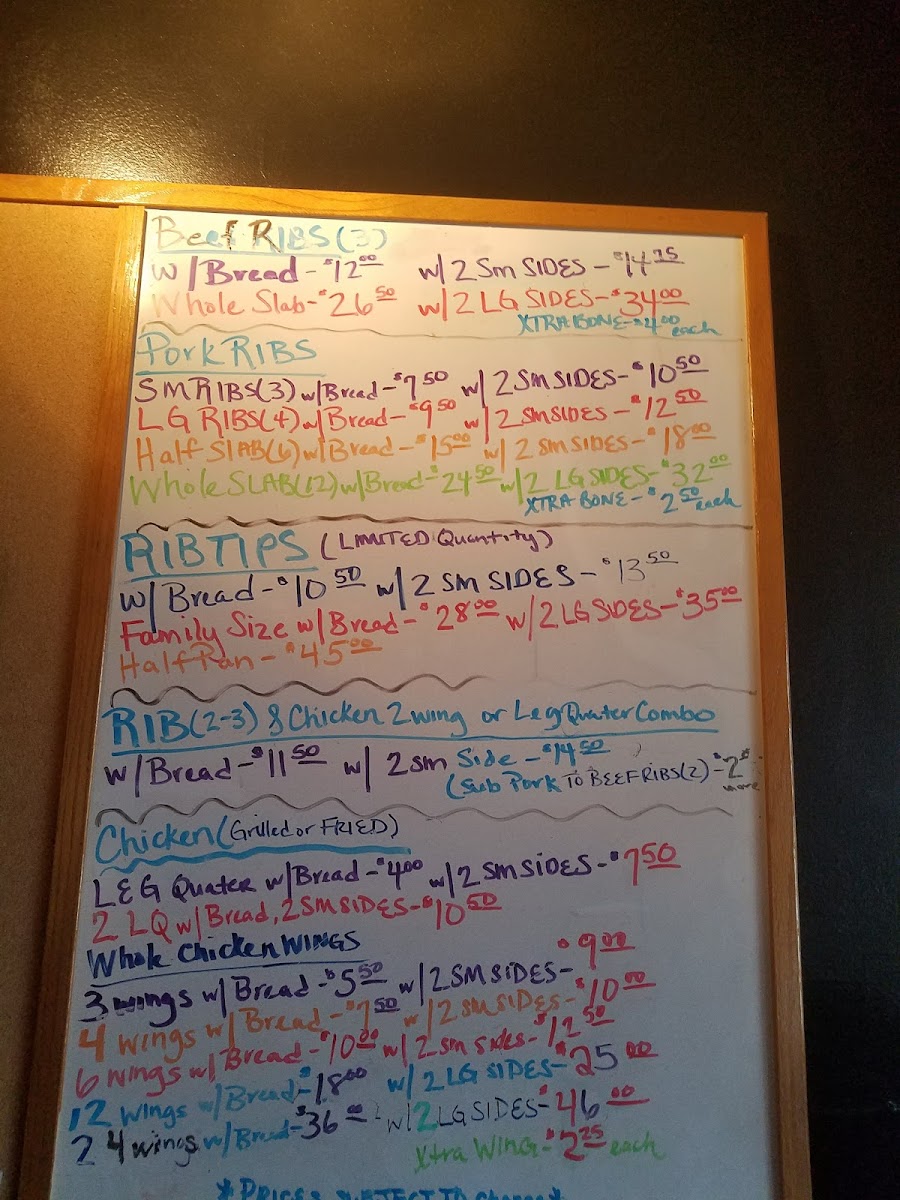 Beef RIBS (3)
w/Bread - $12.00 w/2 Sm SIDES - $14.75
Whole Slab - $26.50 w/2 LG SIDES - $34.00
XTRA BONE - $4.00 each
Pork RIBS
SM RIBS(3) w/Bread - $7.50 w/2 SM SIDES - $10.50
LG RIBS(4) w/Bread - $9.50 w/2 SM SIDES - $12.50
Half SLAB(6) w/Bread - $15.00 w/2 SM SIDES - $18.00
Whole SLAB(12) w/Bread - $24.50 w/2 LG SIDES - $32.00
XTRA BONE - $2.50 each
RIB TIPS (LIMITED Quantity)
w/Bread - $10.50 w/2 SM SIDES - $13.50
Family Size w/Bread - $28.00 w/2 LG SIDES - $35.00
Half Pan - $45.00
RIB(2-3) & Chicken 2 wing or Leg Quater Combo
w/Bread - $11.50 w/ 2 sm Side - $14.50
(Sub Pork TO BEEF RIBS(2) - $2 more
Chicken (Grilled or FRIED)
LEG Quater w/Bread - $4.00 w/2 SM SIDES - $7.50
2 LQ w/Bread, 2 SM SIDES - $10.50
Whole Chicken WINGS
3 wings w/Bread - $5.50 w/2 SM SIDES - $9.00
4 wings w/Bread - $7.50 w/2 SM SIDES - $10.00
6 wings w/Bread - $10.00 w/2 sm sides - $12.50
12 wings w/Bread - $18.00 w/2 LG SIDES - $25.00
24 wings w/Bread - $36.00 w/2 LG SIDES - $46.00
Xtra WING - $2.25 each
*PRICES SUBJECT TO change*